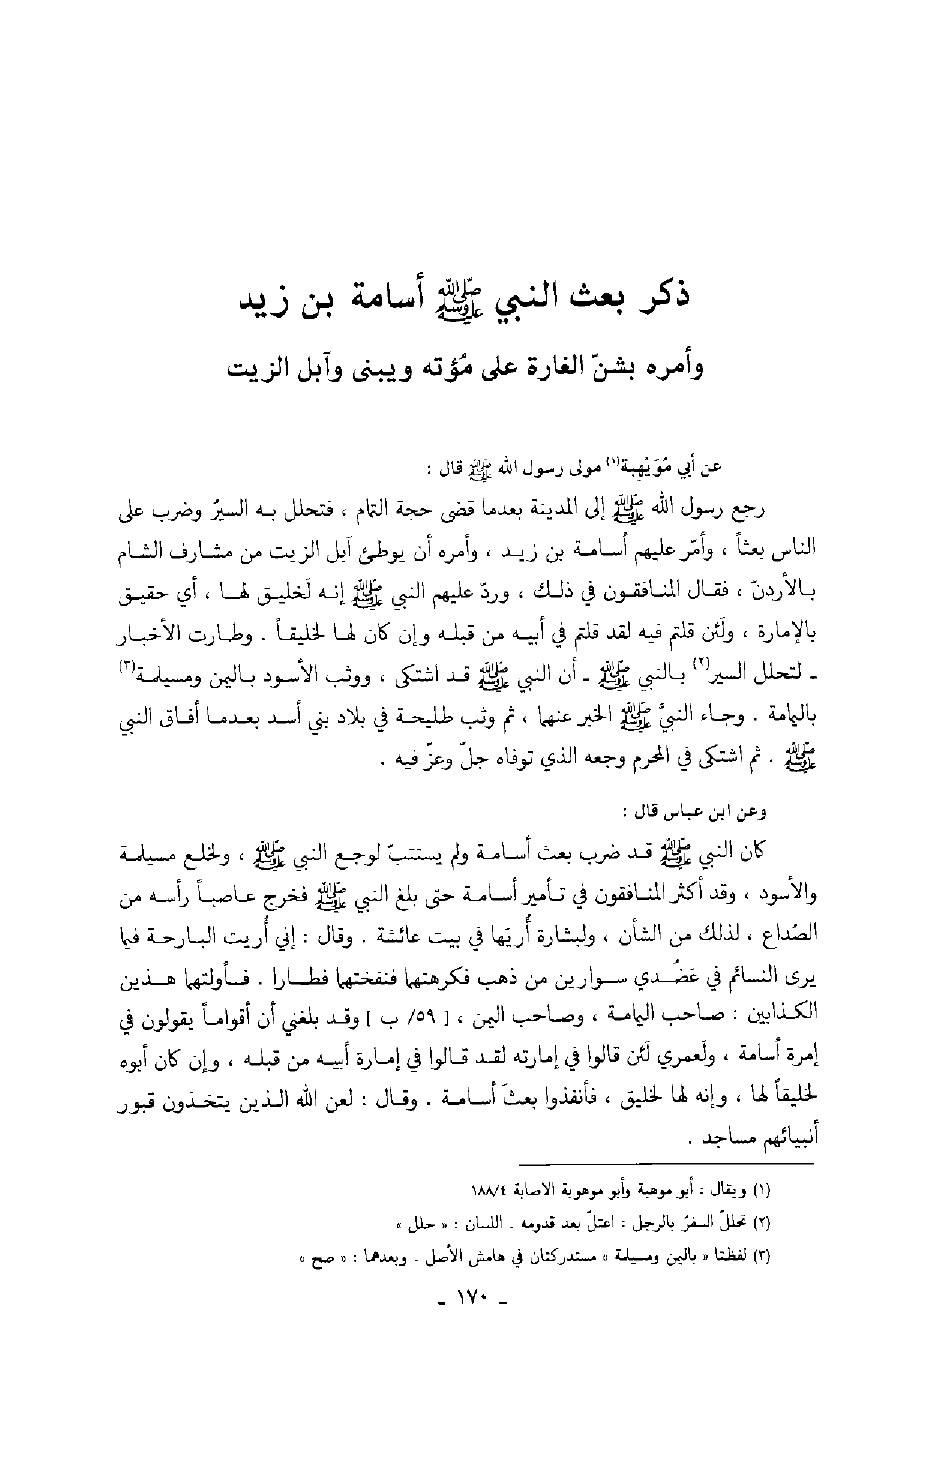 ذكر بعث النبي ﷺ أسامة بن زيد
وأمره بشنّ الغارة على مُؤته ويبنى وآبل الزيت
عن أبي مُوَيْهِبة(١) مولى رسول الله ﷺ قال :
رجع رسول الله ﷺ إلى المدينة بعدما قضى حجة التمام ، فتحلل به السيرُ وضرب على
الناس بعثاً ، وأمّر عليهم أسامة بن زيد ، وأمره أن يوطئ آبل الزيت من مشارف الشام
بالأردنّ ، فقال المنافقون في ذلك ، وردّ عليهم النبي ﷺ إنه لَخليق لها ، أي حقيق
بالإمارة ، ولَئن قلتم فيه لقد قلتم في أبيه من قبله وإن كان لها لخليقاً . وطارت الأخبار
ـ لتحلل السير(٢) بالنبي ﷺ ـ أن النبي ﷺ قد اشتكى ، ووثب الأسود باليمن ومسيلمة(٣)
باليمامة . وجاء النبيَّ ﷺ الخبر عنهما ، ثم وثب طليحة في بلاد بني أسد بعدما أفاق النبي
ﷺ . ثم اشتكى في المحرم وجعه الذي توفاه جلّ وعزّ فيه .
وعن ابن عباس قال :
كان النبي ﷺ قد ضرب بعث أسامة ولم يستتبّ لوجع النبي ﷺ ، ولخلع مسيلمة
والأسود ، وقد أكثر المنافقون في تأمير أسامة حتى بلغ النبي ﷺ فخرج عاصباً رأسه من
الصُداع ، لذلك من الشأن ، ولبشارة أُريَها في بيت عائشة . وقال : إني أُريت البارحة فيما
يرى النائم في عَضُدي سوارين من ذهب فكرهتهما فنفختهما فطارا . فأولتهما هذين
الكذابين : صاحب اليمامة ، وصاحب اليمن ، [ ٥٩/ ب ] وقد بلغني أن أقواماً يقولون في
إمرة أسامة ، ولَعمري لَئن قالوا في إمارته لقد قالوا في إمارة أبيه من قبله ، وإن كان أبوه
لخليقاً لها ، وإنه لها لخليق ، فأنفذوا بعثَ أسامة . وقال : لعن الله الذين يتخذون قبور
أنبيائهم مساجد .
(١) ويقال : أبو موهبة وأبو موهوبة الاصابة ١٨٨/٤
(٢) تحلل السفرُ بالرجل : اعتلّ بعد قدومه . اللسان : « حلل »
(٣) لفظتا « باليمن ومسيلمة » مستدركتان في هامش الأصل . وبعدهما : « صح »
ـ ١٧٠ ـ